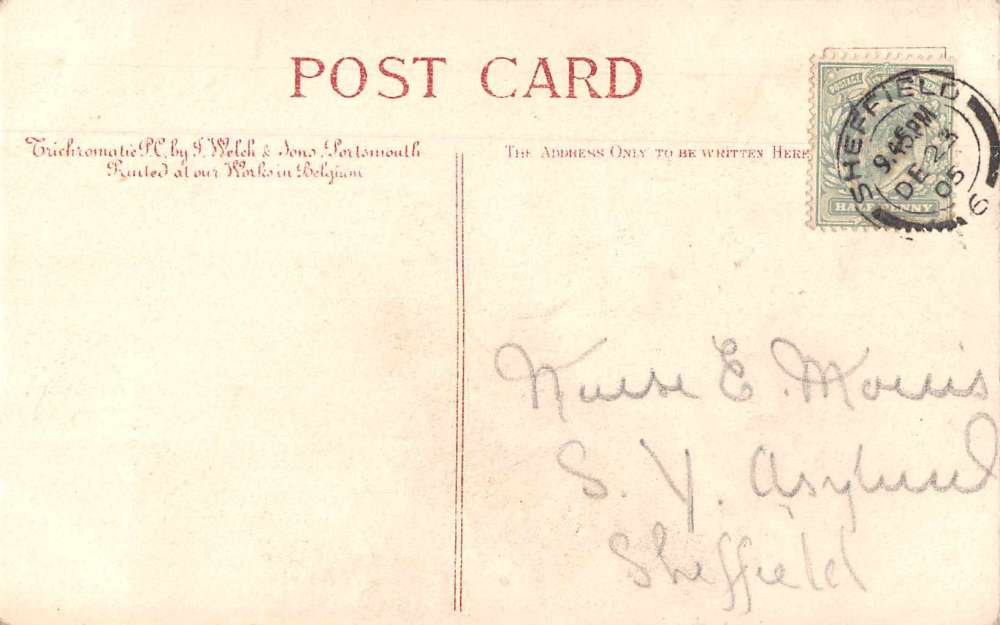 POST CARD
Trichromatic P.C. by J. Welch & Sons, Portsmouth
Printed at our Works in Belgium
THE ADDRESS ONLY TO BE WRITTEN HERE
SHEFFIELD
9.45 PM
DE 23
05
6
HALFPENNY
Nurse E. Morris
S. Y. Asylum
Sheffield